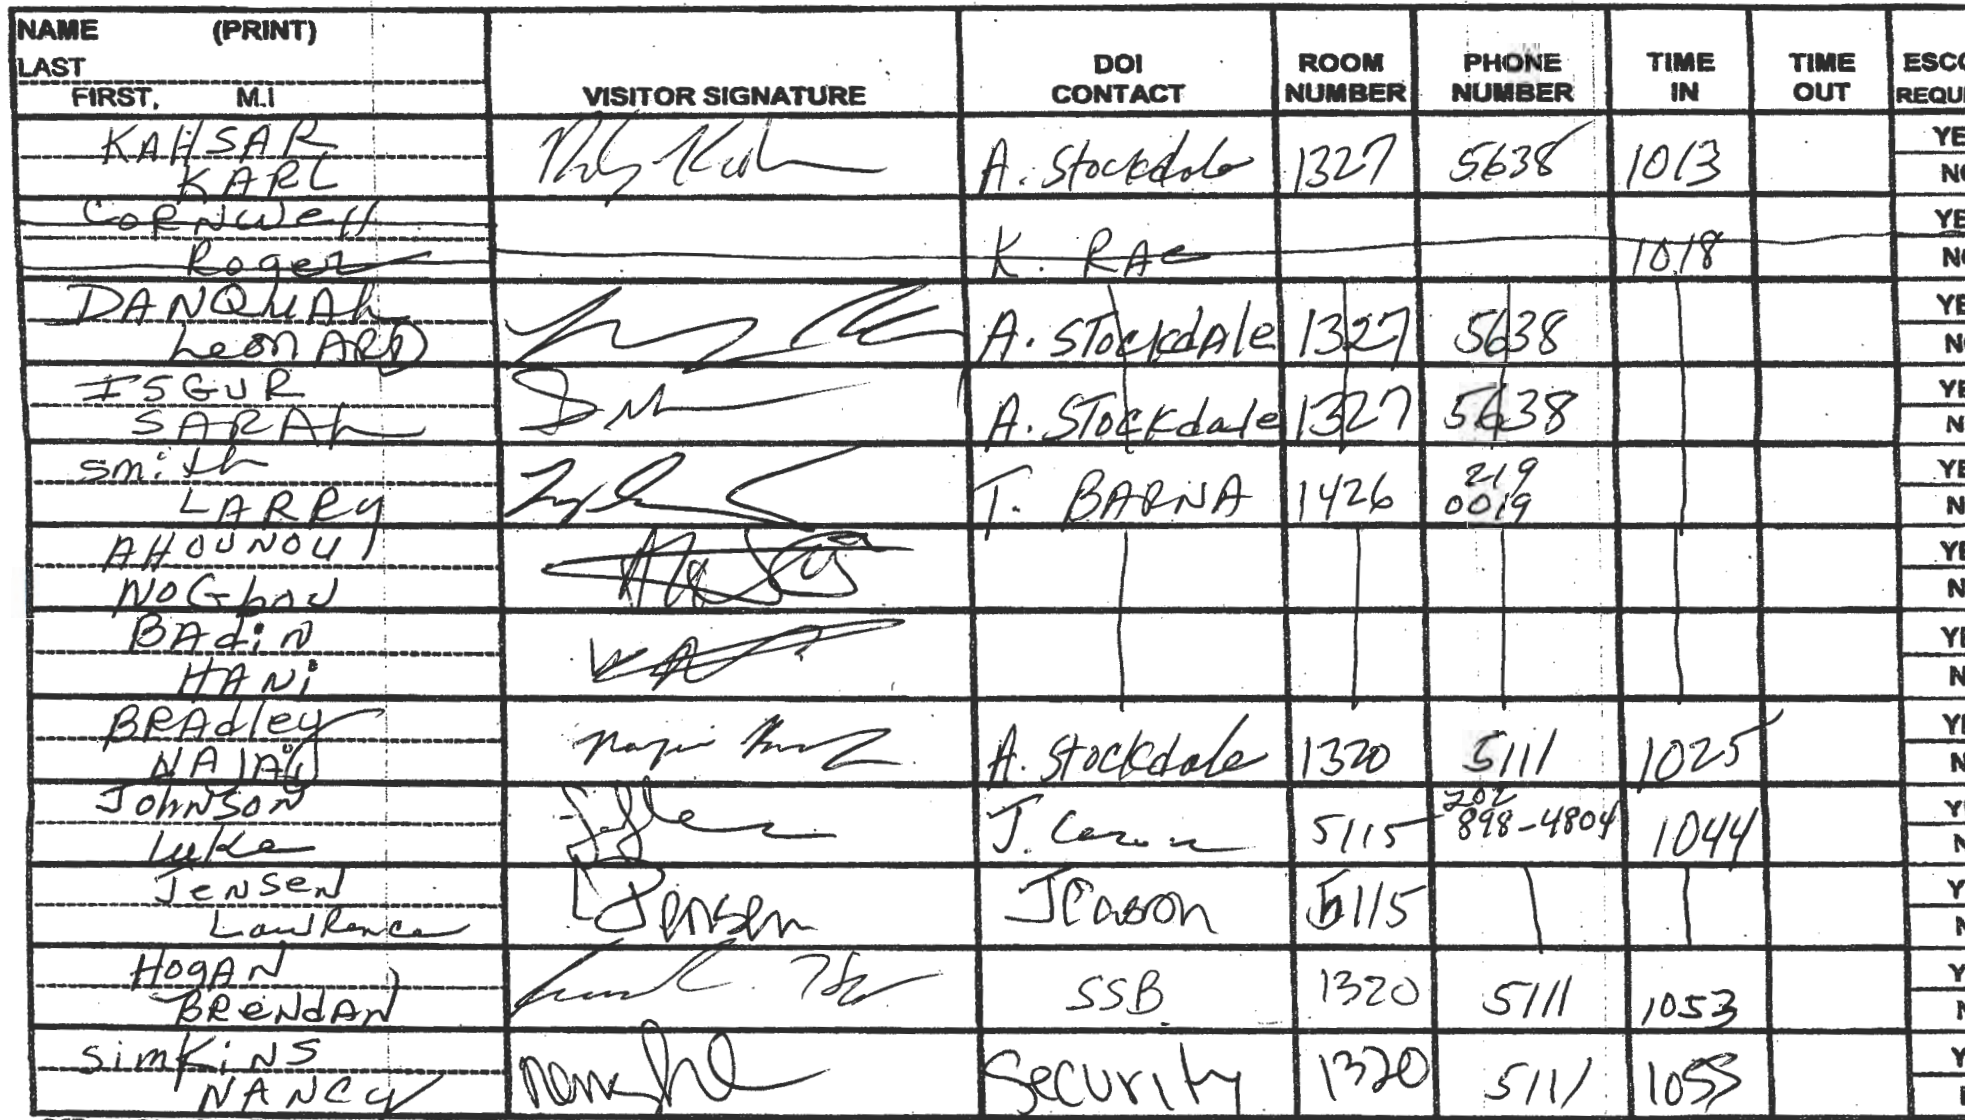 NAME (PRINT)
LAST
FIRST, M.I
VISITOR SIGNATURE
DOI CONTACT
ROOM NUMBER
PHONE NUMBER
TIME IN
TIME OUT
KAHSAR
KARL
A. Stockdale 1327 5638 1013
CORNWell
Roger
K. RAE 1018
DANQUAh
LeonARD
A. STockdAle 1327 5638
ISGUR
SARAh
A. STockdale 1327 5638
smith
LARRy
T. BARNA 1426 219
0019
AHOUNOU
BAdiN
HANi
BRAdley
A. Stockdale 1320 5111 1025
JohNSON
Luke
J. 5115 202
898-4804 1044
JeNSeN
LawRence
Jensen JCason 5115
HogAN
BReNdAN
SSB 1320 5111 1053
simKiNS
NANCy
Security 1320 5111 1055